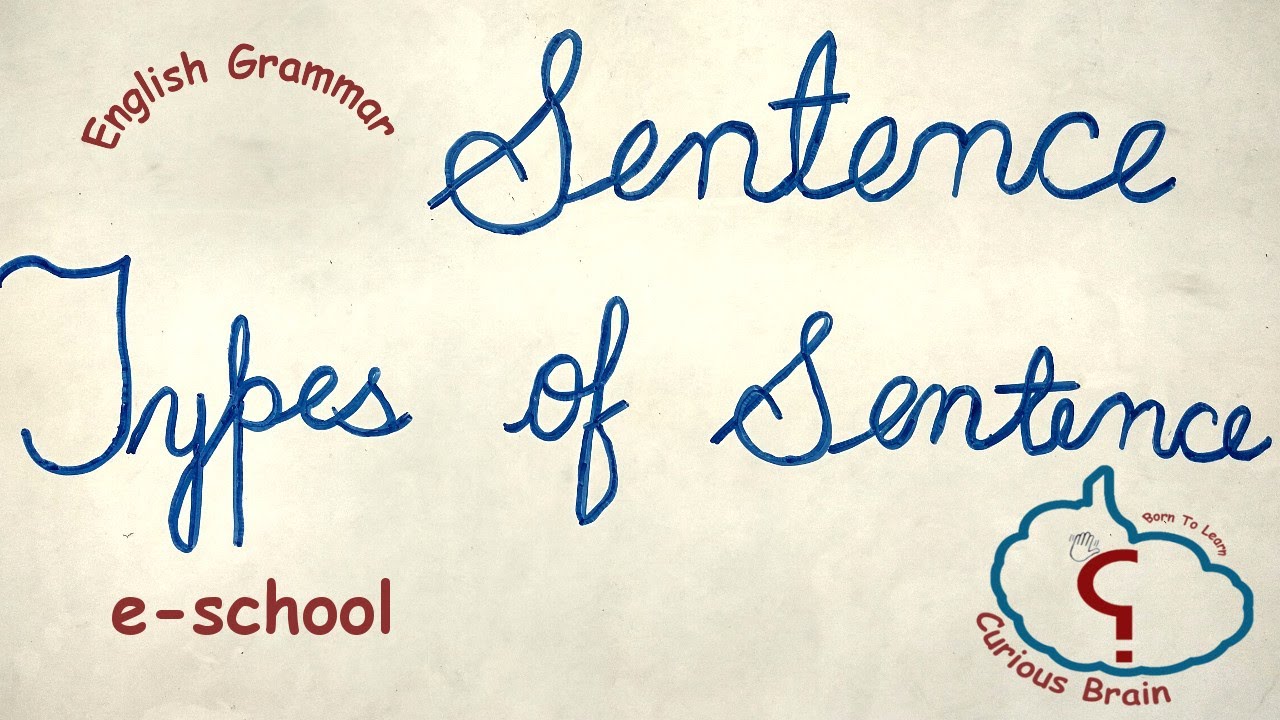 English Grammar
Sentence
Types of Sentence
e-school
Born To Learn
?
Curious Brain